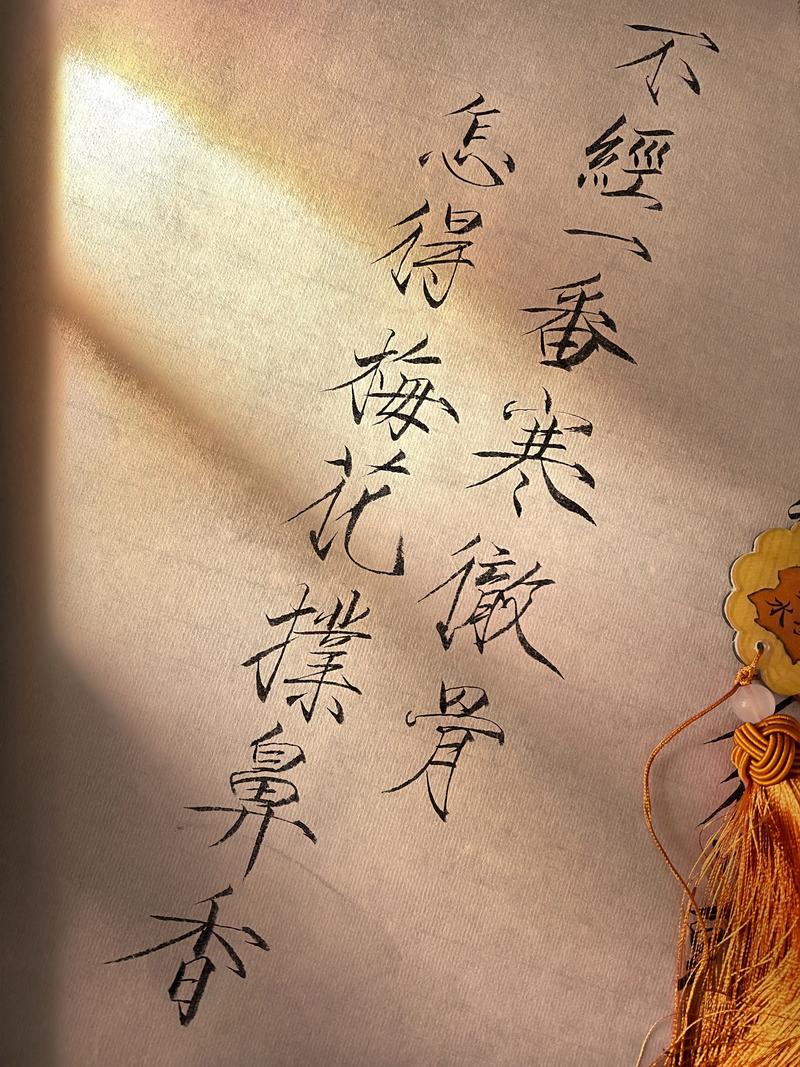 不經一番寒徹骨
怎得梅花撲鼻香